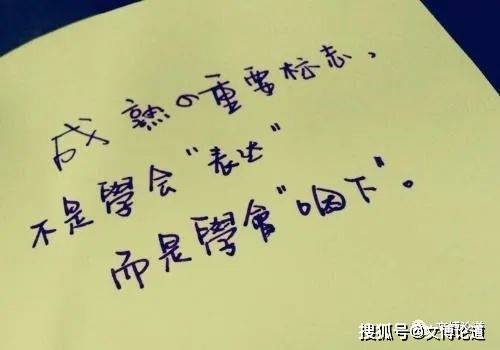 成熟の重要标志，
不是學会“表达”
而是學會“咽下”。
搜狐号@文博论道